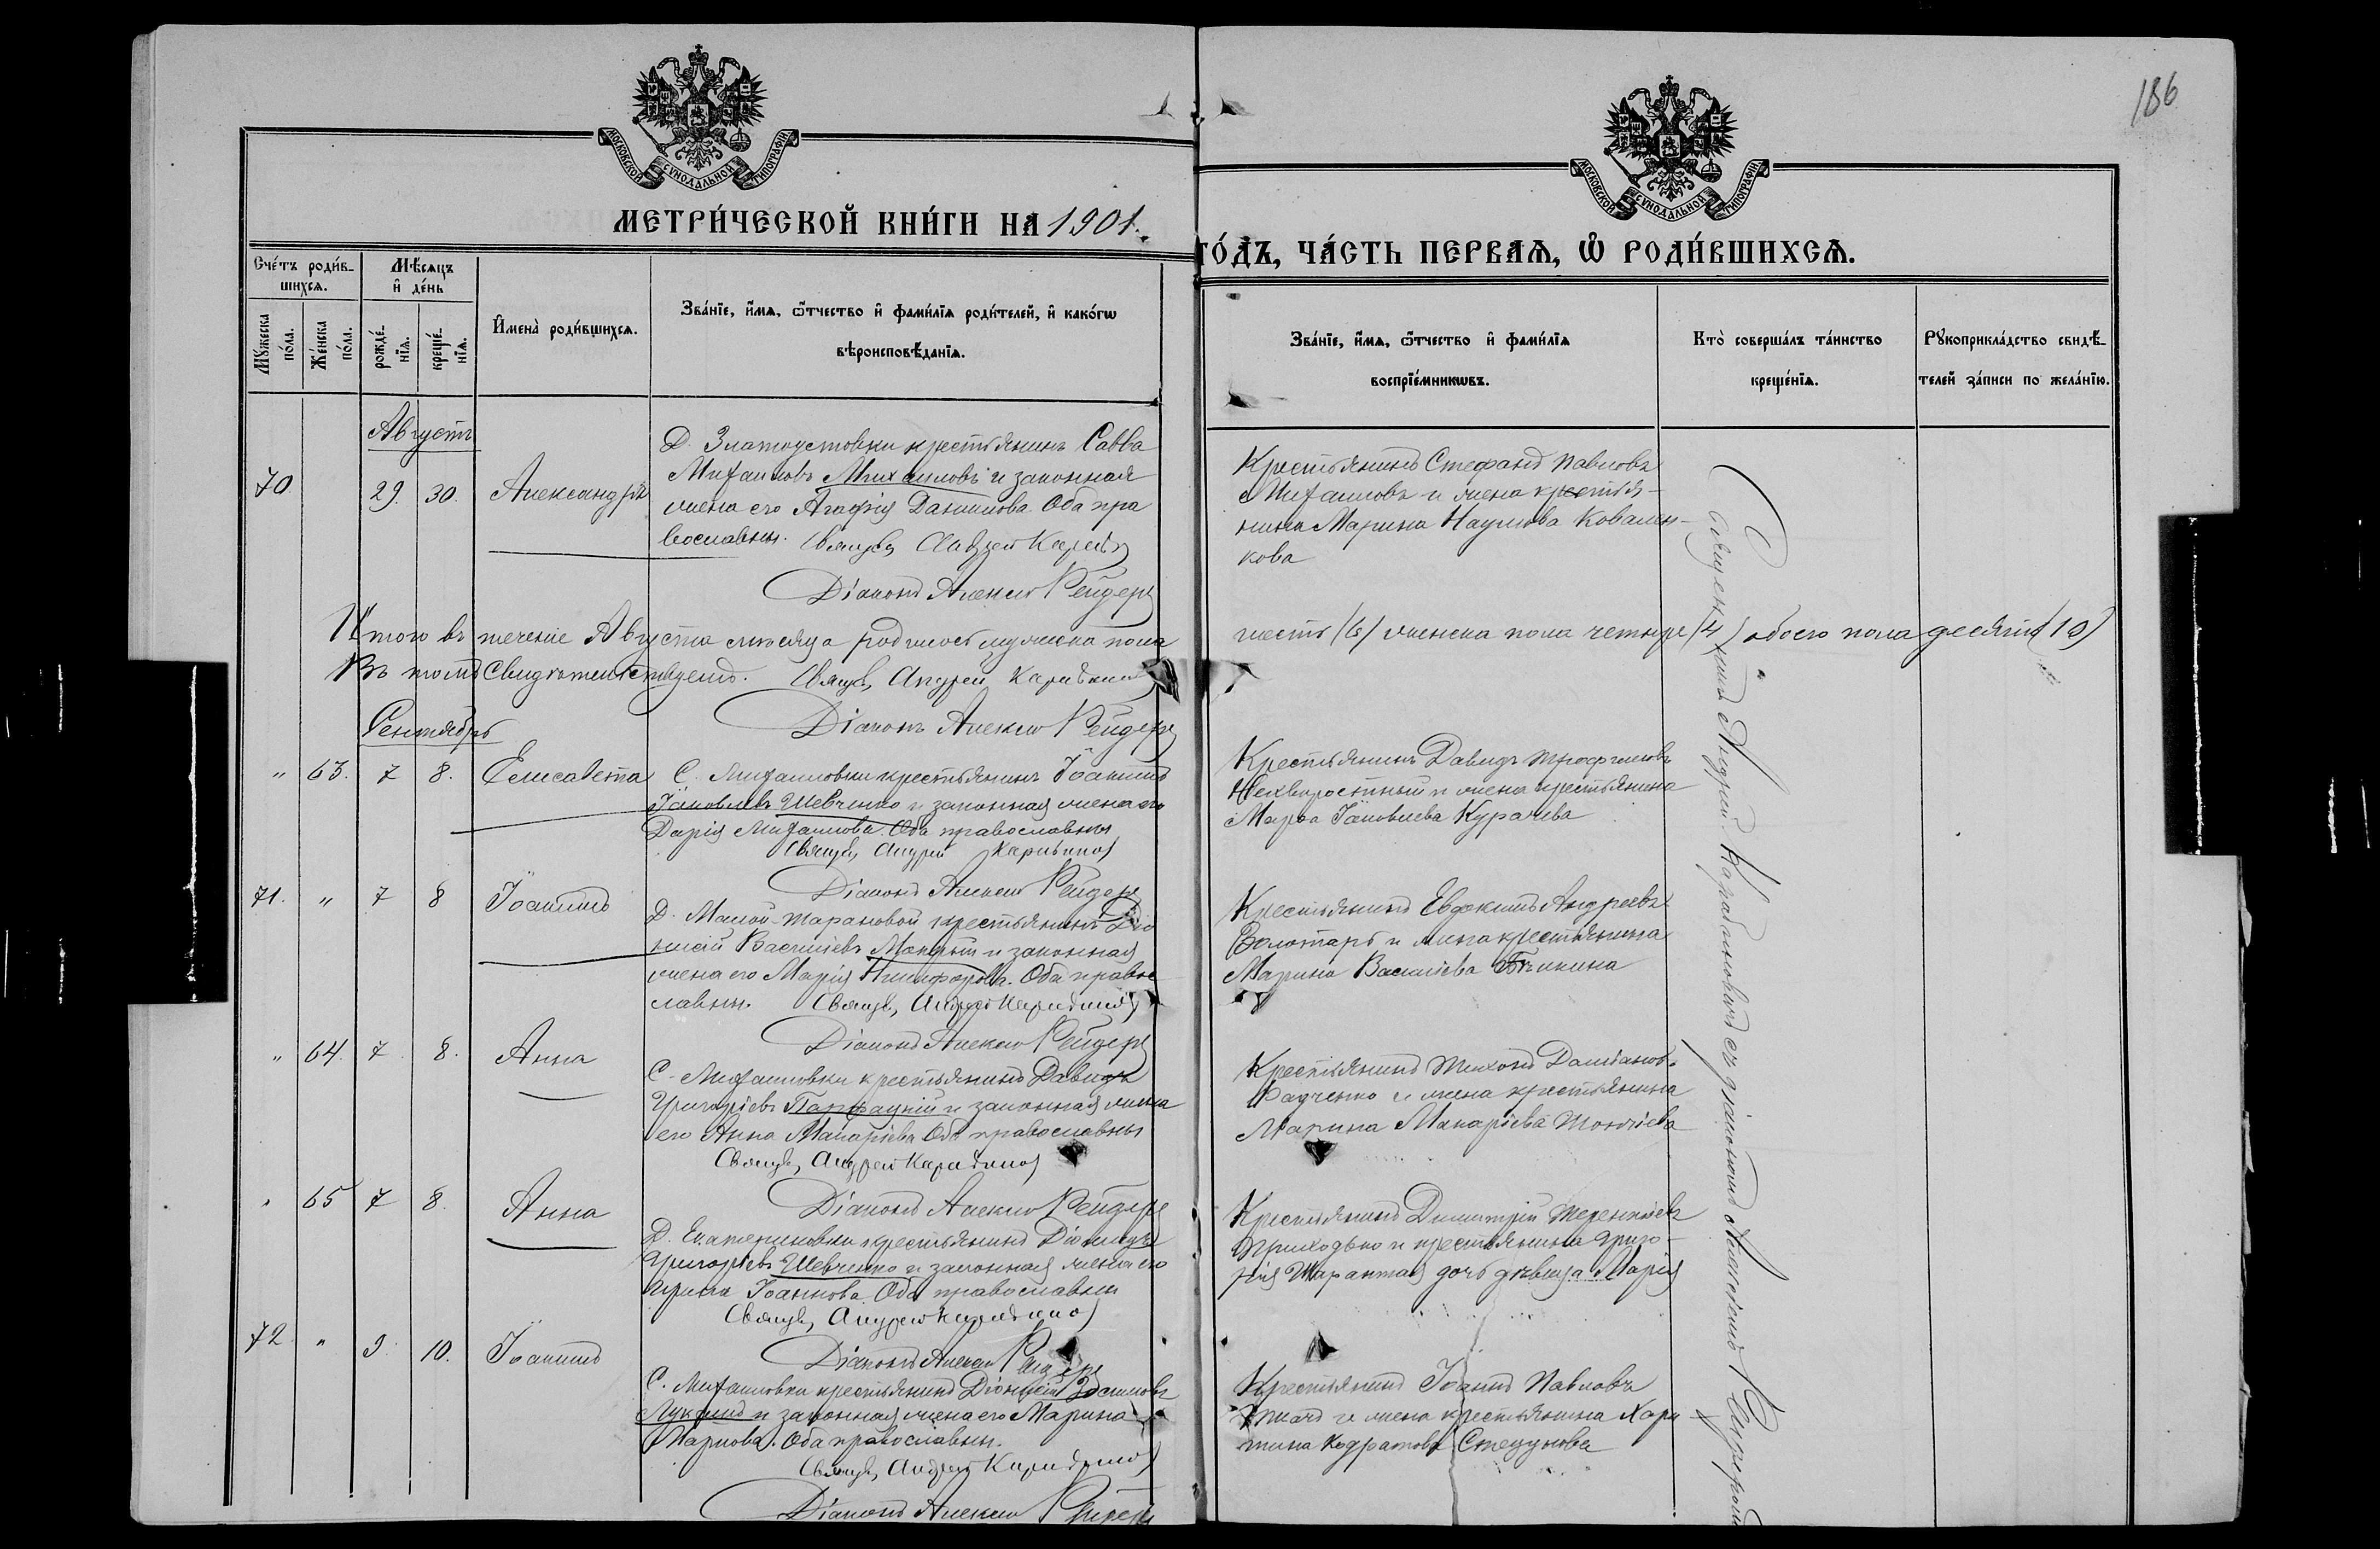 186
МОСКОВСКОЙ СѴНОДАЛЬНОЙ ТИПОГРАФІИ
МОСКОВСКОЙ СѴНОДАЛЬНОЙ ТИПОГРАФІИ
МЕТРИ́ЧЕСКОЙ КНИ́ГИ НА 1901.
ГО́ДЪ, ЧА́СТЬ ПЕРВАЯ, Ѡ҆ РОДИ́ВШИХСѦ.
Сче́тъ роди́в-
шихсѧ.
Мѣ́сѧцъ
и҆ де́нь
Мꙋ́жеска
по́ла.
Же́нска
по́ла.
рожде́-
нїѧ.
креще́-
нїѧ.
И҆мена̀ роди́вшихсѧ.
Зва́нїе, и҆́мѧ, ѻ҆́тчество и҆ фами́лїѧ роди́телей, и҆ како́гѡ
вѣроисповѣ́данїѧ.
Зва́нїе, и҆́мѧ, ѻ҆́тчество и҆ фами́лїѧ
воспрїе́мникѡвъ.
Кто̀ соверша́лъ та́инство
креще́нїѧ.
Рꙋкоприкла́дство свидѣ́-
телей за́писи по жела́нїю.
Августъ
70 29. 30. Александръ
Д. Златоустовки крестьянинъ Савва
Михаиловъ Михаиловъ и законная
жена его Агафія Даниилова. Оба пра
вославны. Священ. Андрей
Діаконъ Алексій Рейдеръ
Крестьянинъ Стефанъ Павловъ
Михаиловъ и жена крестья-
нина Марина Наумова Ковален-
кова
Итого въ теченіе Августа мѣсяца родилось мужеска пола
шесть (6) женска пола четыре (4) обоего пола десять (10)
Въ томъ свидѣтельствуемъ. Священ. Андрей
Діаконъ Алексій Рейдеръ
Сентябрь
" 63. 7 8. Елисавета
С. Михаиловки крестьянинъ Іоаннъ
Іаковлевъ Шевченко и законная жена его
Дарія Михаилова. Оба православны
Священ. Андрей
Діаконъ Алексій Рейдеръ
Крестьянинъ Давидъ Трофимовъ
и жена крестьянина
Марѳа Іаковлева Курачева
71. " 7 8 Іоаннъ
Д. Малой-Тарановой крестьянинъ Діо
нисій Василіевъ и законная
жена его Марія Никифорова. Оба право
славны. Священ. Андрей
Діаконъ Алексій Рейдеръ
Крестьянинъ Евдокимъ Андреевъ
Золотарь и жена крестьянина
Марина Василіева
" 64. 7 8. Анна
С. Михаиловки крестьянинъ Давидъ
Григоріевъ и законная жена
его Анна Макаріева Оба православны
Священ. Андрей
Діаконъ Алексій Рейдеръ
Крестьянинъ Тихонъ
Радченко и жена крестьянина
Марина Макаріева
" 65 7 8. Анна
Д. Екатериновки крестьянинъ
Григоріевъ Шевченко и законная жена его
Ирина Іоаннова. Оба православны
Священ. Андрей
Діаконъ Алексій Рейдеръ
Крестьянинъ Димитрій Терентіевъ
Приходько и крестьянина Григо-
рія дочь дѣвица Марія
72 " 9. 10. Іоаннъ
С. Михаиловки крестьянинъ Діонисій
и законная жена его Марина
Карпова. Оба православны.
Священ. Андрей
Діаконъ Алексій Рейдеръ
Крестьянинъ Іоаннъ Павловъ
и жена крестьянина Хари
тина Кодратова
Священникъ Андрей съ діакономъ Алексіемъ